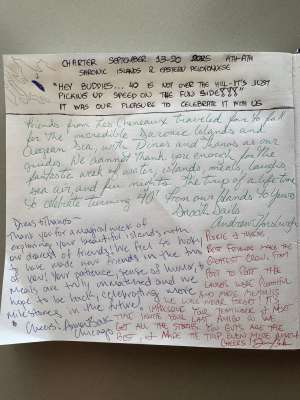 CHARTER SEPTEMBER 13-20 2025 ATH-ATH
SARONIC ISLANDS & EASTERN PELOPONNESE
"HEY BUDDIES... 40 IS NOT OVER THE HILL - IT'S JUST
PICKING UP SPEED ON THE FUN SIDE!!!"
IT WAS OUR PLEASURE TO CELEBRATE IT WITH US
Friends from Les Cheneaux traveled far to fall
for the incredible Saronic Islands and
Aegean Sea, with Dinos and Thanos as our
guides. We cannot thank you enough for the
fantastic week of water, islands, meals, laughs,
sea air, and fun nights. The trip of a lifetime
to celebrate turning 40! From our Islands to Yours
Smooth Sails
Dinos & Thanos -
Thank you for a magical week of
exploring your beautiful islands with
our dearest of friends! We feel so lucky
to have made new friends in the two
of you! Your patience, sense of humor, &
meals are truly unmatched and we
hope to be back, celebrating more
milestones in the future!
Cheers,
Chicago
BEST FORWARD
GREATEST CREW. FROM
PORT TO PORT THE
LAUGHS WERE PLENTIFUL
AND MORE MEMORIES
WE WILL NEVER FORGET IT'S
YOUR TEAMWORK IS MOST
TIME
GET ALL THE STORIES. YOU GUYS ARE THE
BEST, & MADE THE TRIP EVEN MORE
CHEERS!